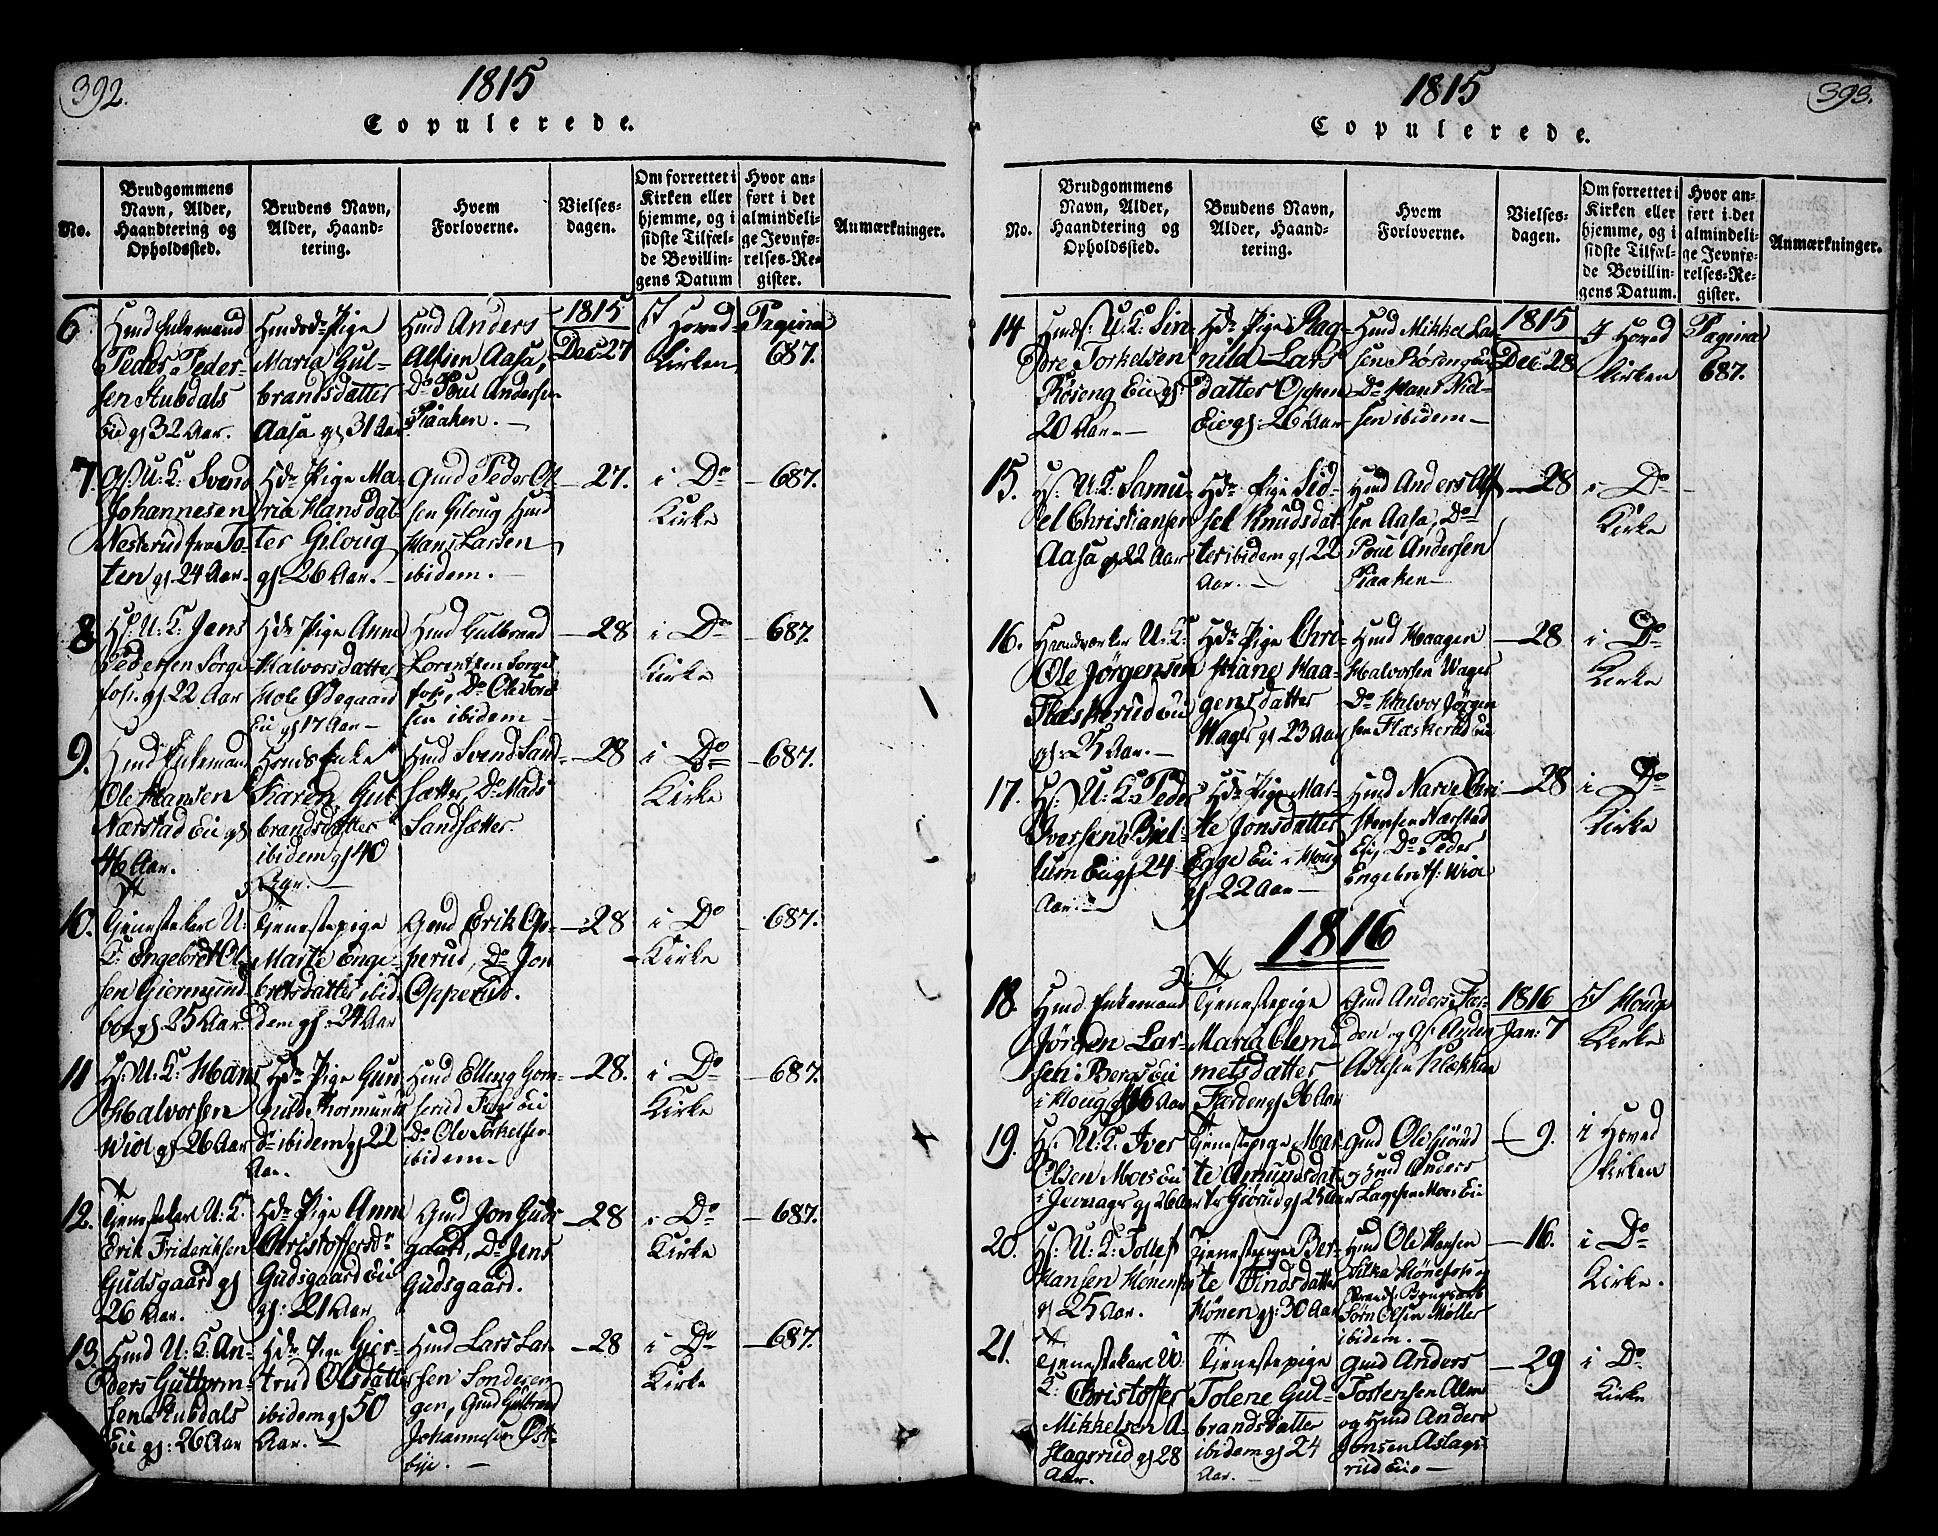 392.
1815
Copulerede.
No.
Brudgommens
Navn, Alder,
Haandtering og
Opholdssted.
Brudens Navn,
Alder, Haand-
tering.
Hvem
Forloverne.
Vielses-
dagen.
Om forrettet i
Kirken eller
hjemme, og i
sidste Tilfæl-
de Bevillin-
gens Datum
Hvor an-
ført i det
almindeli-
ge Jevnfø-
relses-Re-
gister.
Anmærkninger.
6
Hmd Enkemand
Peder Peder-
sen Stubdals
Eie gl 32 Aar.
Hmdsd. Pige
Maria Gul-
brandsdatter
Aasa gl 31 Aar
Hmd Anders
Alfsen Aasa,
Do Poul Andersen
Plaaken.
1815
Dec: 27
I Hoved
Kirken
Pagina
687.
7.
U: K: Svend
Johannesen
Næsterud fra To-
ten gl. 24 Aar.
Hdr Pige Ma-
ria Hansdat-
ter Giloug
gl. 26 Aar.
Gmd Peder Ol-
sen Giloug Hmd
Hans Larsen
ibidem.
27.
i Do
Kirke
687.
8
U: K: Jens
Pedersen Sørge-
fos. gl 22 Aar
Hdr Pige Anne
Halvorsdatter
Hole Ødegaard
Eie gl 17 Aar
Hmd Gulbrand
Lorentzen Sorge
fos, Do Ole
sen ibidem
28
i Do
Kirke
687.
9.
Hmd Enkemand
Ole Hansen
Nærstad Eie gl
46 Aar.
Hmds Enke
Karen Gul-
brandsdatter
ibidem gl 40
Aar.
Hmd Svend Sand-
sætter, Do Mads
Sandsætter.
28
i Do
Kirke
687.
10.
Tjenestekarl U:
K: Engebret Ol-
sen Giermund
boe gl 25 Aar.
Tjenestepige
Marte Enge-
bretsdatter ibid
dem gl: 24 Aar
Gmd Erik Op-
perud, Do Jon
Opperud.
28
i Do
Kirke
687.
11
U: K: Hans
Halvorsen
Wiol gl 26 Aar
Hdr Pige Gun
huld Thormunds
dr ibidem gl 22
Aar.
Hmd Elling Gom-
serud Eie
Do Ole Torkelsen
ibidem.
28.
i Do
Kirke
687.
12.
Tjenestekarl U: K.
Erik Frideriksen
Gudsgaard gl
26 Aar.
Hdr Pige Anne
Christoffersdr
Gudsgaard Eie
gl: 21 Aar
Gmd Jon Guds
gaard, Do Jens
Gudsgaard.
28
i Do
Kirke
687.
13.
Hmd U: K An-
ders Guttorm-
sen Stubdals
Eie gl: 26 Aar
Hdr Pige Gier-
trud Olsdatter
ibidem gl 50
Aar.
Hmd Lars Lar-
sen Sonderen
gen, Gmd Gulbrand
Johannesen Øst-
bye.
28
i Do
Kirke
687.
393.
1815
Copulerede.
No.
Brudgommens
Navn, Alder,
Haandtering og
Opholdssted.
Brudens Navn,
Alder, Haand-
tering.
Hvem
Forloverne.
Vielses-
dagen.
Om forrettet i
Kirken eller
hjemme, og i
sidste Tilfæl-
de Bevillin-
gens Datum.
Hvor an-
ført i det
almindeli-
ge Jevnfø-
relses-Re-
gister.
Anmærkninger.
14
U: K: Sin-
dre Torkelsen
Røseng Eie gl:
20 Aar.
Hdr Pige Rag-
nild Lars
datter Oppen
Eie gl: 26 Aar
Hmd Mikkel Lar
sen Røseng Eie
Do Hans Niel-
sen ibidem
1815
Dec: 28
I Hoved
Kirken
Pagina
687.
15.
U: K: Samu-
el Christiansen
Aasa gl 22 Aar
Hdr Pige Sid-
sel Knudsdat-
ter ibidem gl 22
Aar.
Hmd Anders Alf
sen Aasa, Do
Poul Andersen
Plaaken
28
i Do
Kirke
16.
Haandværker U: K:
Ole Jörgensen
Flaskerud Eie
gl: 25 Aar.
Hdr Pige Chri-
stiane Haa-
gensdatter
Wager gl 23 Aar
Hmd Haagen
Halvorsen Wager
Do Halvor Jörgen
sen Flaskerud Eie
28
i Do
Kirke
17.
U: K: Peder
Iversen Biel-
lum Eie gl 24
Aar.
Hdr Pige Mar-
te Jonsdatter
Enge Eie i Houg
gl 22 Aar
Hmd Narve Chri
stensen Nærstad
Eie, Do Peder
Engebrets: Wiol
28
i Do
Kirke
1816
18.
Hmd Enkemand
Jörgen Lar-
sen Bergs Eie
i Houg gl 46 Aar
Tjenestepige
Maria Clem-
metsdatter
Færden gl 26 Aar
Gmd Anders Fær-
den og
Klækken
1816
Jan: 7
I Houg
Kirke
19.
U: K: Iver
Olsen Moes Eie
i Jevnager gl 26 Aar
Tjenestepige Mar-
te Amundsdat-
ter Giörud gl 25 Aar
Gmd Ole Giörud
og Hmd Anders
Moes Eie
9.
i Hoved
Kirken
20.
U: K: Tollef
Hansen Hönefos
gl 25 Aar.
Tjenestepige Ber-
te Findsdatter
Hönen gl: 30 Aar
Hmd Ole Hansen
Hönefos og
Sörn Olsen Møller
ibidem.
16.
i Do
Kirke.
21.
Tjenestekarl U:
K: Christoffer
Mikkelsen A-
slagsrud gl 28
Aar.
Tjenestepige
Tolene Gul-
brandsdatter
ibidem gl 24
Aar.
Gmd Anders
Tostensen Alm
og Hmd Anders
Jonsen Aslags-
rud Eie
29
i Do
Kirke